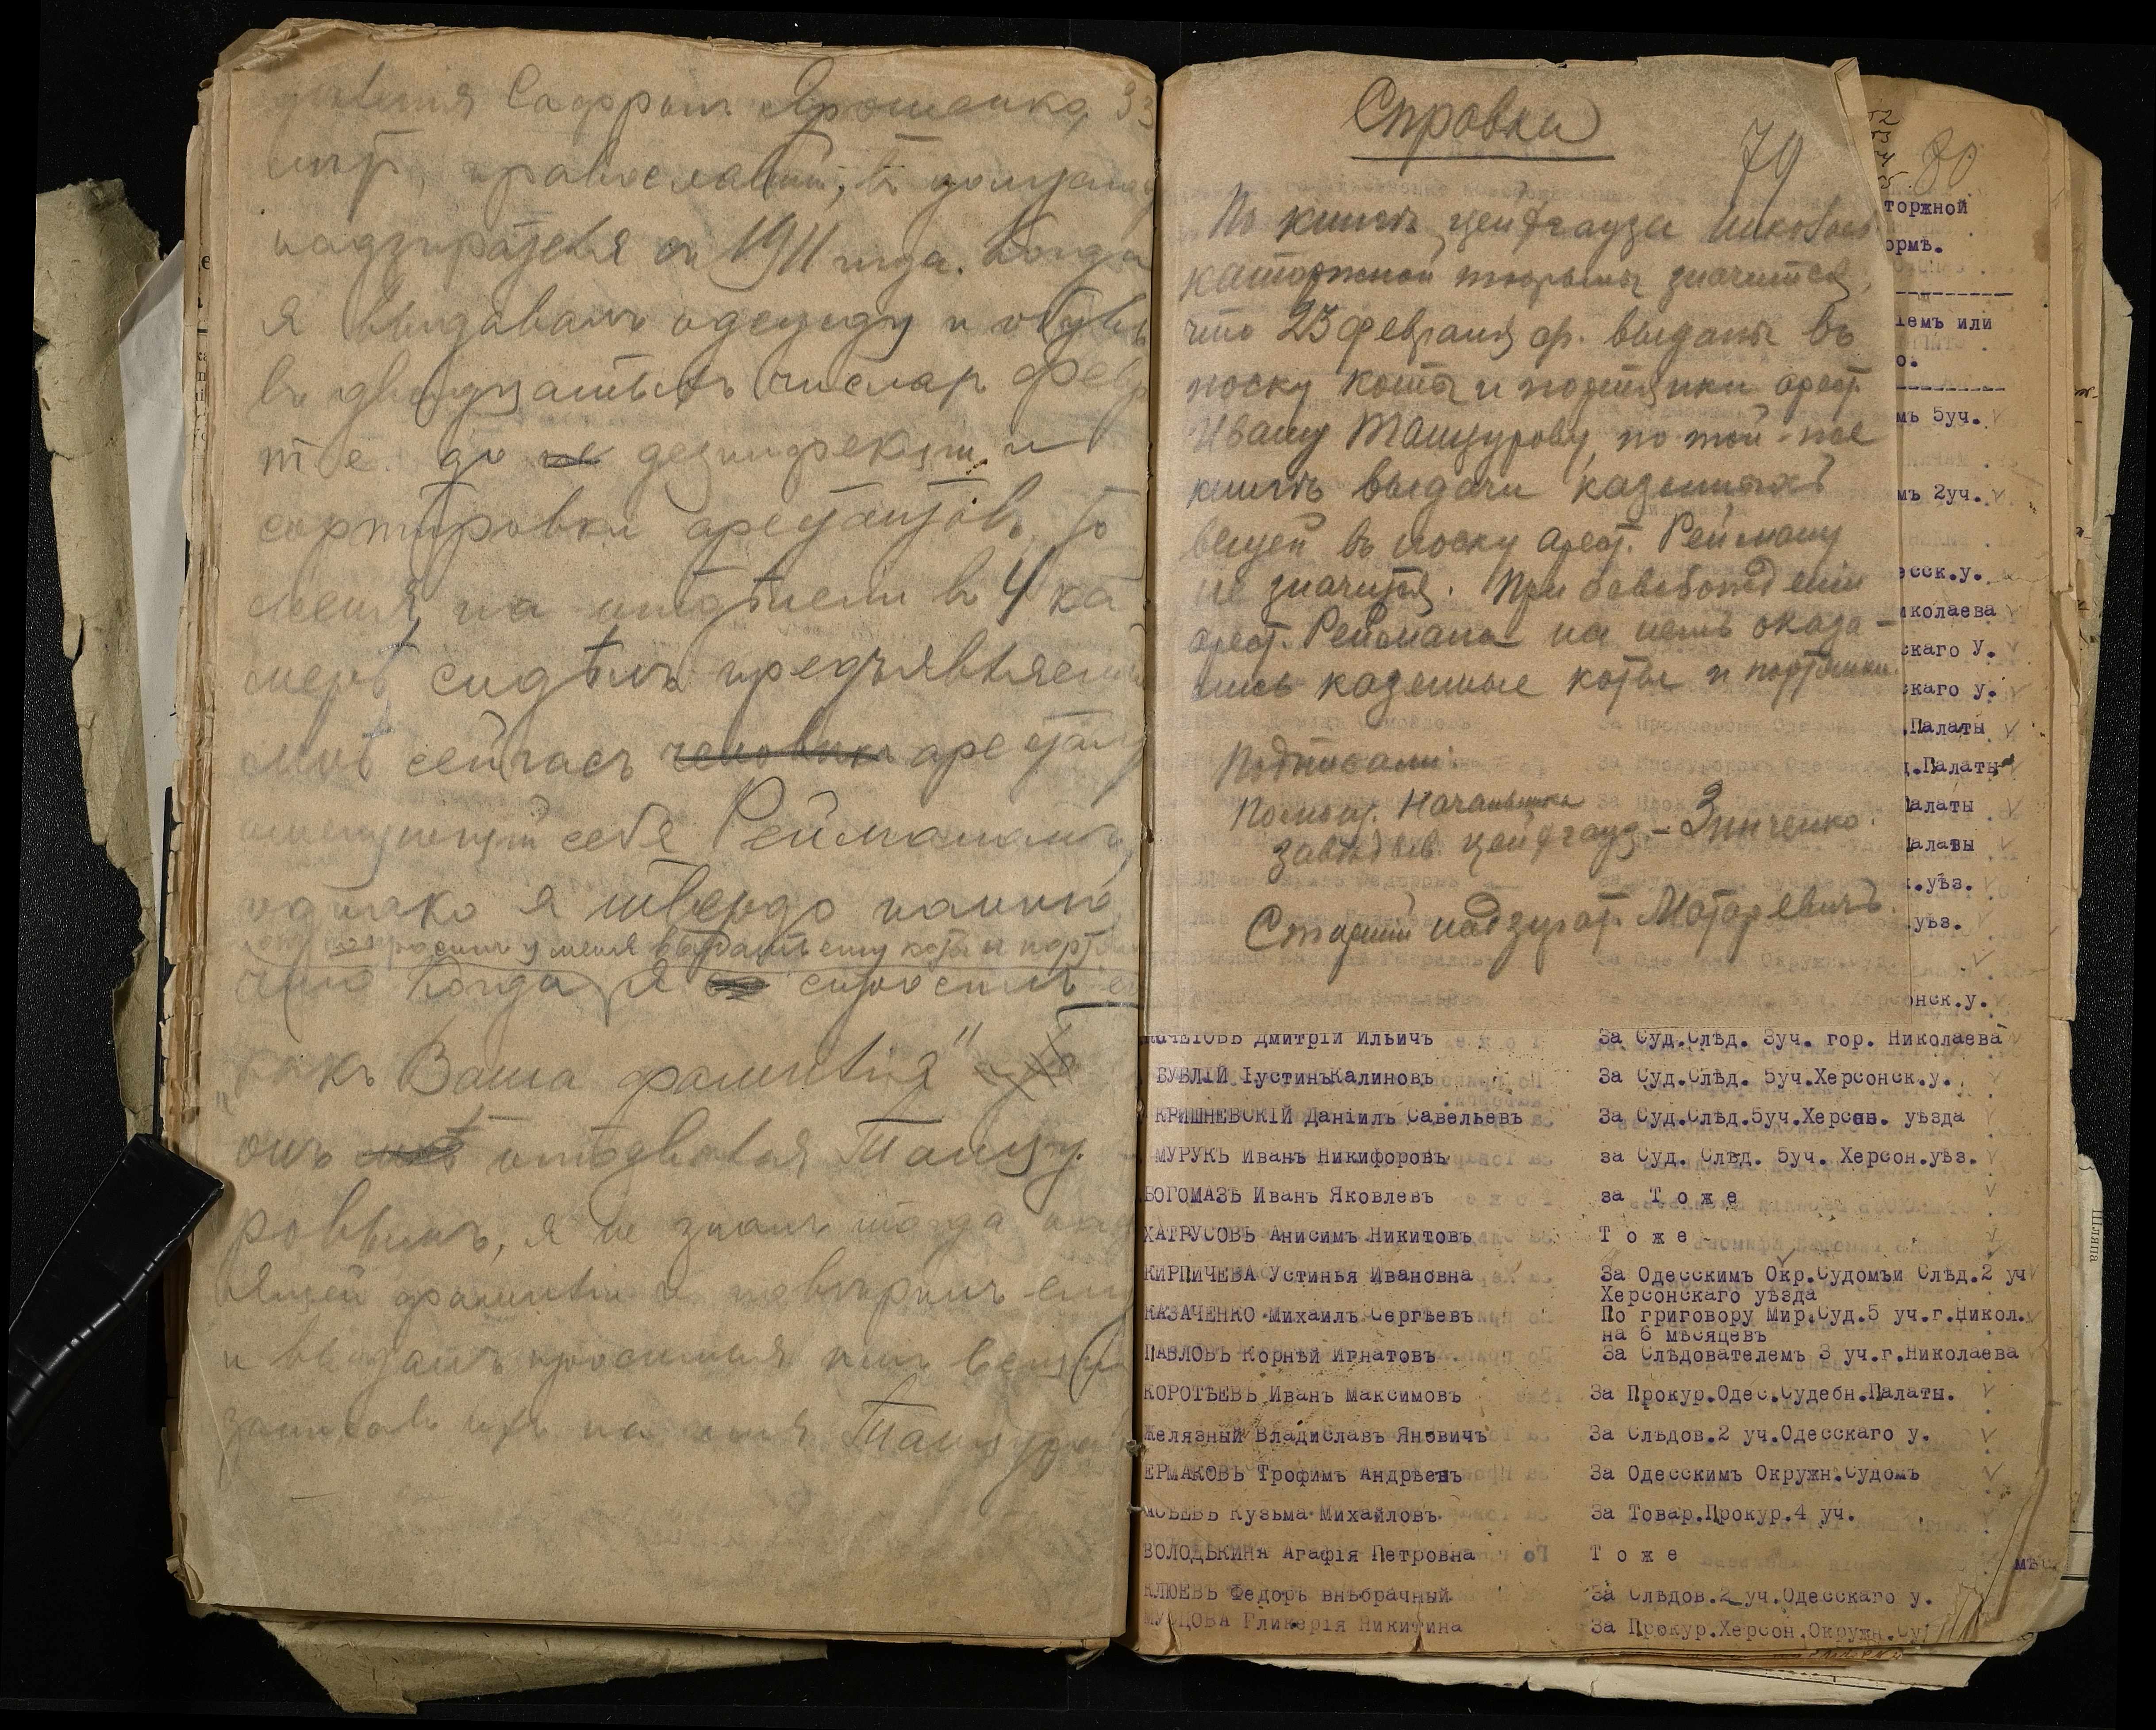 Софрон. Ярошенко, 33
лѣт, православный, в должности
надзирателя съ 1911 года. Когда
я выдавалъ одежду и обувь
въ двадцатыхъ числах февр
т.е. до не дезинфекции и
сортировки арестантовъ, то
меня на отдѣлении в 4 ка
мерѣ сидѣлъ предъявляемый
мнѣ сейчасъ человѣкъ арестант
именующий себя Рейманомъ,
однако я твердо помню,
попросилъ у меня выдать ему коты и портян
что когда я спросилъ ег
"какъ Ваша фамилія"
онъ мнѣ отозвался Танцу-
ровымъ, я не зналъ тогда нас
ящей фамиліи и повѣрилъ ему
и выдалъ просимыя имъ вещи
записавъ ихъ на имя Танцуро
Справки
79
По книгѣ цейхгауза Николаев
каторжной тюрьмы значится,
что 23 февраля ср. выданы въ
носку коты и портянки арест.
Ивану Танцурову, по той-же
книгѣ выдачи казенныхъ
вещей въ носку арест. Рейману
не значится. При освобожденіи
арест. Реймана на немъ оказа-
лись казенные коты и портянки.
Подписали:
Помощ. Начальника
завѣдыв цейхгауз - Зинченко.
Старшій надзират. Матаревичъ.
80
торжной
ормѣ.
лемъ или
о.
мъ 5уч.
мъ 2уч.
есск.у.
иколаева
скаго У.
скаго у.
.Палаты
д.Палаты
Палаты
Палаты
.уѣз.
.уѣз.
онск.у.
КОЧЕТОВЪ Дмитрій Ильичъ За Суд.Слѣд. 3уч. гор. Николаева
БУБЛІЙ ІустинъКалиновъ За Суд.Слѣд. 5уч.Херсонск.у.
КРИШНЕВСКІЙ Даніилъ Савельевъ За Суд.Слѣд.5уч.Херсон. уѣзда
МУРУКЪ Иванъ Никифоровъ за Суд. Слѣд. 5уч. Херсон.уѣз.
БОГОМАЗЪ Иванъ Яковлевъ за Т о ж е
ХАТРУСОВЪ Анисимъ Никитовъ Т о ж е
КИРПИЧЕВА Устинья Ивановна За Одесскимъ Окр.Судомъи Слѣд.2 уч
Херсонскаго уѣзда
КАЗАЧЕНКО Михаилъ Сергѣевъ По григовору Мир.Суд.5 уч.г.Никол.
на 6 мѣсяцевъ
ПАВЛОВЪ Корнѣй Игнатовъ За Слѣдователемъ 3 уч.г.Николаева
КОРОТѢЕВЪ Иванъ Максимовъ За Прокур.Одес.Судебн.Палаты.
Желязный Владиславъ Яновичъ За Слѣдов.2 уч.Одесскаго у.
ЕРМАКОВЪ Трофимъ Андрѣевъ За Одесскимъ Окружн.Судомъ
МОѢЕВЪ Кузьма Михайловъ За Товар.Прокур.4 уч.
ВОЛОДЬКИНА Агафія Петровна Т о ж е
КЛЮЕВЪ Федоръ внѣбрачный За Слѣдов.2 уч.Одесскаго у.
МУРЦОВА Гликерія Никитина За Прокур.Херсон.Окружн.Су
Шляпа